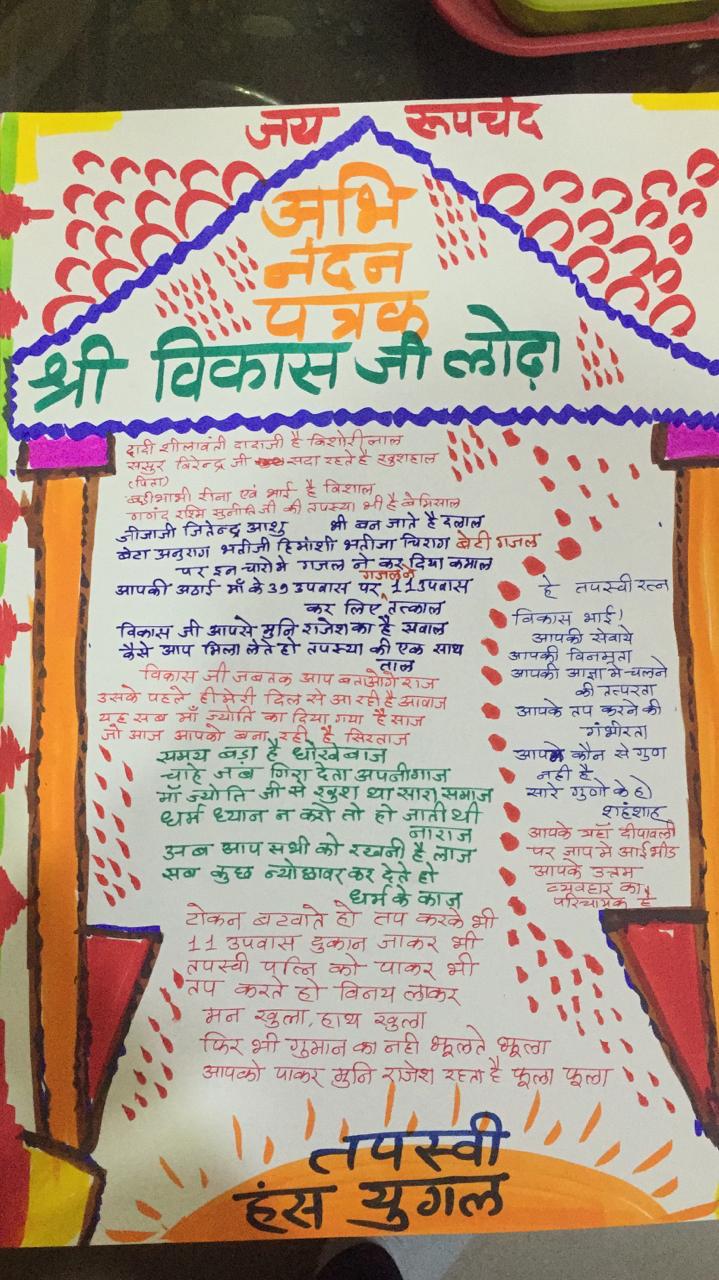 जय रूपचंद
अभि
नंदन
पत्रक
श्री विकास जी लोढ़ा
दादी शीलावंती दादाजी है किशोरीलाल
ससुर विरेन्द्र जी सदा रहते है खुशहाल
(पिता)
बड़ीभाभी रीना एवं भाई है विशाल
ननंद रश्मि सुनीति जी की तपस्या भी है बेमिसाल
जीजाजी जितेन्द्र आशु भी बन जाते है दलाल
बेटा अनुराग भतीजी हिमांशी भतीजा चिराग बेटी गजल
पर इन चारो मे गजल ने कर दिया कमाल
गजलने
आपकी अठाई माँ के 39 उपवास पर 11 उपवास
कर लिए तत्काल
विकास जी आपसे मुनि राजेश का है सवाल
कैसे आप मिला लेते हो तपस्या की एक साथ
ताल
विकास जी जबतक आप बताओगे राज
उसके पहले ही मेरी दिल से आ रही है आवाज
यह सब माँ ज्योति का दिया गया है साज
जो आज आपको बना रही है सिरताज
समय बड़ा है धोखेबाज
चाहे जब गिरा देता अपनी गाज
माँ ज्योति जी से खुश था सारा समाज
धर्म ध्यान न करो तो हो जाती थी
नाराज
अब आप सभी को रखनी है लाज
सब कुछ न्योछावर कर देते हो
धर्म के काज
टोकन बटवाते हो तप करके भी
11 उपवास दुकान जाकर भी
तपस्वी पत्नि को पाकर भी
तप करते हो विनय लाकर
मन खुला, हाथ खुला
फिर भी गुमान का नही झूलते झूला
आपको पाकर मुनि राजेश रहता है फूला फूला
हे तपस्वी रत्न
विकास भाई!
आपकी सेवाये
आपकी विनम्रता
आपकी आज्ञा मे चलने
की तत्परता
आपके तप करने की
गंभीरता
आपमे कौन से गुण
नही है
सारे गुणो के हो
शहंशाह
आपके यहाँ दीपावली
पर जाप मे आई भीड
आपके उत्तम
व्यवहार का
परिचायक है
तपस्वी
हंस युगल